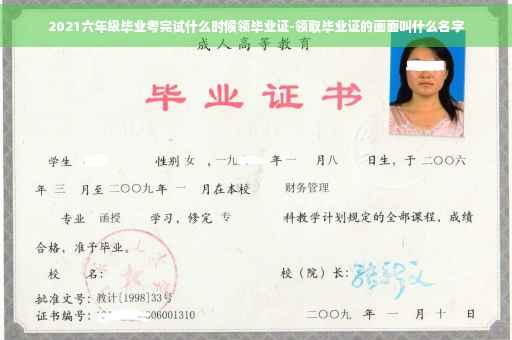 2021六年级毕业考完试什么时候领毕业证-领取毕业证的画面叫什么名字
成人高等教育
毕业证书
学生 性别 女 ，一九 年一 月八 日生，于 二〇〇六
年 三 月至 二〇〇九 年 一 月在本校 财务管理
专业 函授 学习，修完 专 科教学计划规定的全部课程，成绩
合格，准予毕业。
校 名： 校（院）长：
批准文号：教计[1998]33号
证书编号： 06001310 二〇〇九 年 一 月 十 日